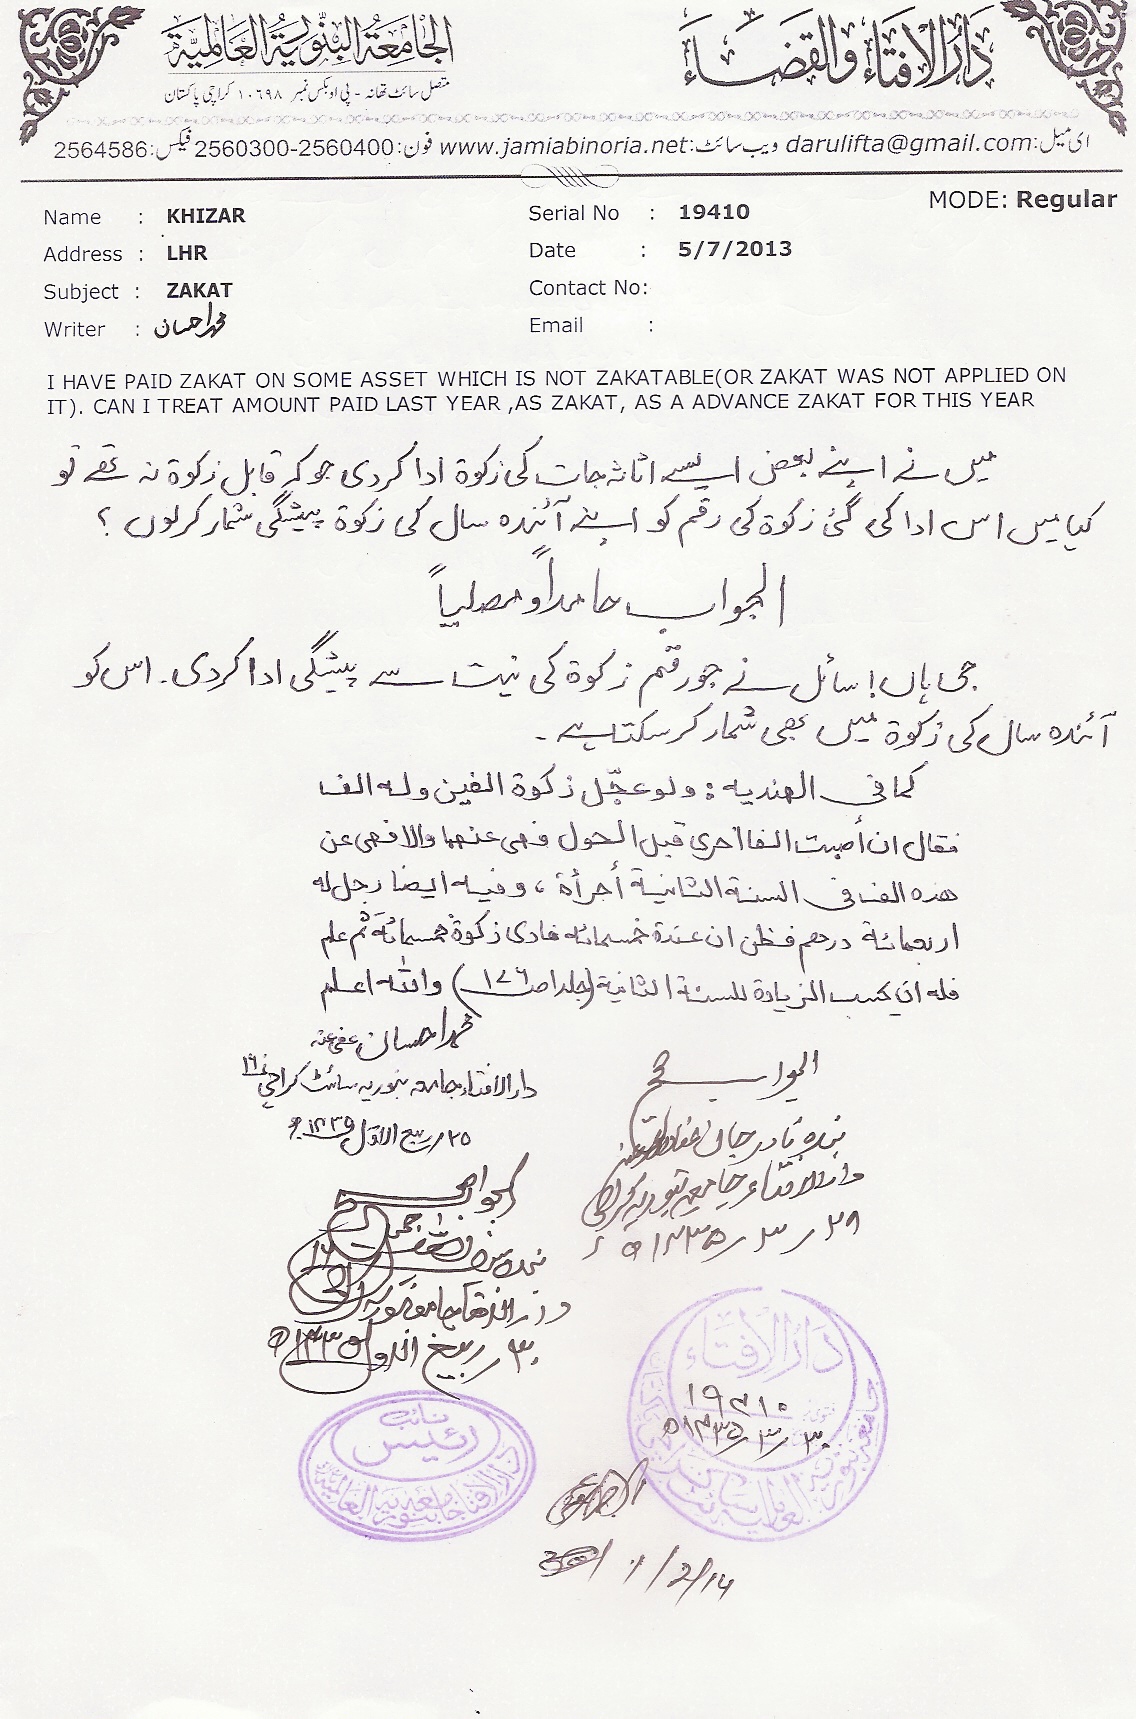 دَارُ الْاِفتَاءِ وَالقَضَاءِ
الجَامعَة البِنّورِيَة العَالَمِيَّة
متصل سائٹ تھانہ - پی او بکس نمبر ۱۰۶۹۸ کراچی پاکستان
ای میل: darulifta@gmail.com ویب سائٹ: www.jamiabinoria.net فون: 2560300-2560400 فیکس: 2564586
MODE: Regular
Name : KHIZAR
Serial No : 19410
Address : LHR
Date : 5/7/2013
Subject : ZAKAT
Contact No:
Writer : محمد احسان
Email :
I HAVE PAID ZAKAT ON SOME ASSET WHICH IS NOT ZAKATABLE(OR ZAKAT WAS NOT APPLIED ON
IT). CAN I TREAT AMOUNT PAID LAST YEAR ,AS ZAKAT, AS A ADVANCE ZAKAT FOR THIS YEAR
میں نے اپنے بعض ایسے اثاثہ جات کی زکوۃ ادا کردی جو کہ قابل زکوۃ نہ تھے تو
کیا میں اس ادا کی گئی زکوۃ کی رقم کو اپنے آئندہ سال کی زکوۃ پیشگی شمار کرلوں ؟
الجواب حامداً ومصلیاً
جی ہاں! سائل نے جو رقم زکوۃ کی نیت سے پیشگی ادا کردی۔ اس کو
آئندہ سال کی زکوۃ میں بھی شمار کر سکتا ہے ۔
کما فی الھندیہ : ولو عجّل زکوۃ الفین ولہ الف
فقال ان أصبت الفا اخری قبل الحول فھی عنھما والا فھی عن
ھذہ الف فی السنۃ الثانیۃ أجرأۃ ، وفیہ ایضا رجل لہ
اربعمائۃ درھم فظن ان عندہ خمسمائہ فادی زکوۃ خمسمائۃ ثم علم
فلہ ان یحسب الزیادۃ للسنۃ الثانیۃ (جلد۱ ص۱۷۶) واللہ اعلم
محمد احسان عفی عنہ
دار الافتاء جامعہ بنوریہ سائٹ کراچی ۱۶
۲۵/ربیع الاوّل ۱۴۳۵ھ
الجواب صحیح
بندہ نادر جان
دار الافتاء جامعہ بنوریہ کراچی
۲۹ / ۳ / ۱۴۳۵ھ
الجواب صحیح
۳۰ ربیع الاول ۱۴۳۵ھ
دَارُ الْاِفتَاء
۱۹۴۱۰
۳۰/۳/۱۴۳۵ھ
نائب
رئیس
دارالافتاء جامعہ بنوریہ العالمیہ
1/2/14